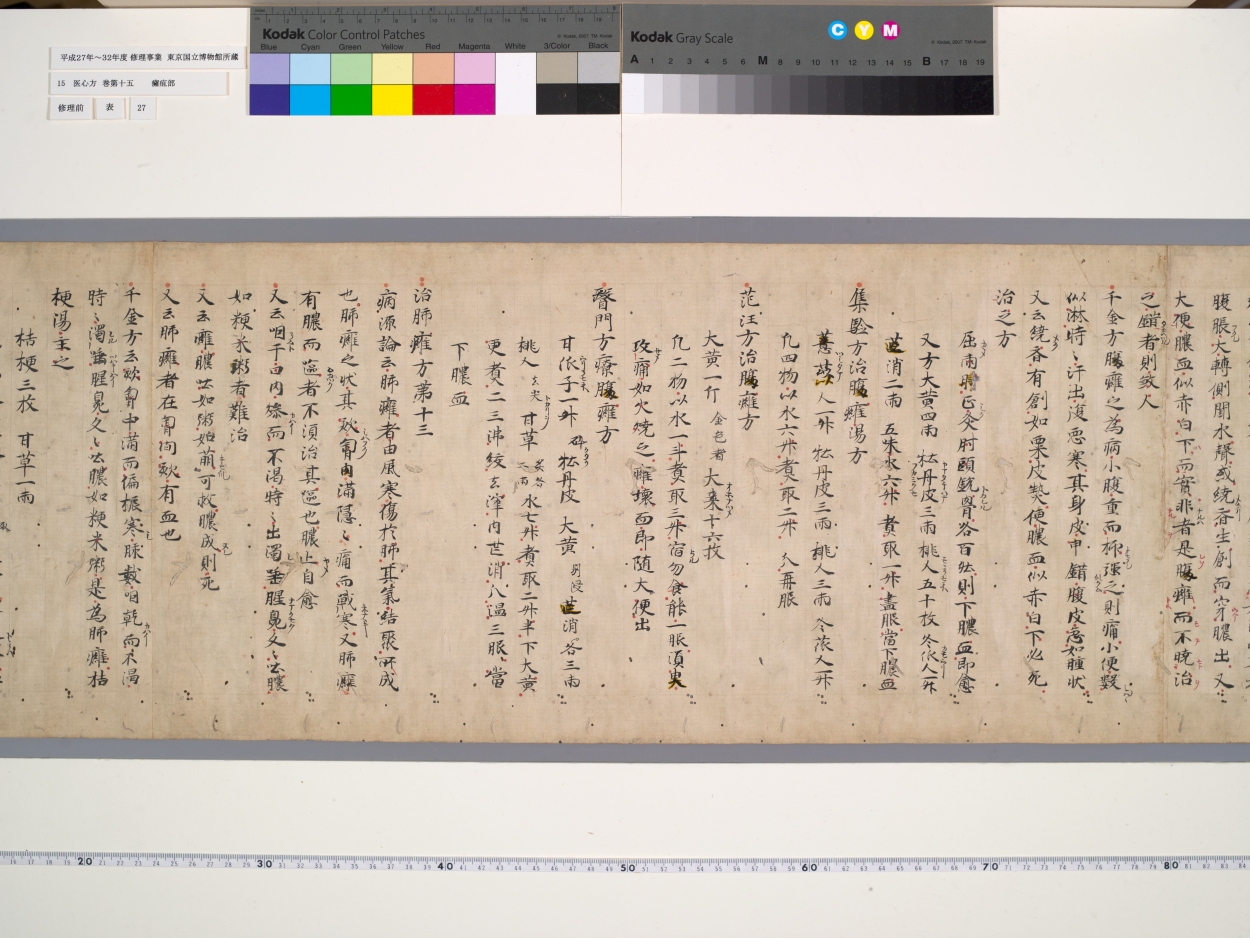 平成27年～32年度 修理事業 東京国立博物館所蔵
15 医心方 巻第十五 癰疽部
修理前 表 27
Kodak Color Control Patches
Blue Cyan Green Yellow Red Magenta White 3/Color Black
Kodak Gray Scale
C Y M
A 1 2 3 4 5 6 M 8 9 10 11 12 13 14 15 B 17 18 19
腹脹大轉側聞水聲或繞齊生創而穿膿出又
大便膿血似赤白下而實非者是腹癰而不曉治
之錯者則致人
千金方腸癰之為病小腹重而極強之則痛小便數
似淋時〻汗出復惡寒其身皮甲錯腹皮急如腫狀
又云繞齊有創如栗皮熱便膿血似赤白下必死
治之方
屈兩正灸肘頭銳骨各百壯則下膿血即愈
又方大黃四兩 牡丹皮三兩 桃人五十枚 冬瓜人一升
芒消二兩 五味水六升 煮取一升盡服當下膿血
集驗方治腹癰湯方
薏苡人一升 牡丹皮三兩 桃人三兩 冬瓜人一升
凡四物以水六升煮取二升 分再服
范汪方治腹癰方
大黃一斤 金色者 大棗十六枚
凡二物以水一斗煮取三升宿勿食能一服須臾
攻痛如火燒之癰壞血即隨大便出
醫門方療腹癰方
甘瓜子一升 碎 牡丹皮 大黃 別浸 芒消各三兩
桃人 去尖 甘草 炙各二兩 水七升煮取二升半下大黃
更煮二三沸絞去滓內芒消分溫三服當
下膿血
治肺癰方第十三
病源論云肺癰者由風寒傷於肺其氣結聚所成
也肺癰之狀其欬胷內滿隱〻痛而戰寒又肺癰
有膿而嘔者不須治其嘔也膿止自愈
又云咽干白內燥而不渴時〻出濁唾腥臭久〻吐膿
如粳米粥者難治
又云癰膿吐如粥始萌可救膿成則死
又云肺癰者在胷間欬有血也
千金方云欬胷中滿而振寒脉數咽乾而不渴
時〻濁唾腥臭久〻吐膿如粳米粥是為肺癰桔
梗湯主之
桔梗三枚 甘草一兩
20 30 40 50 60 70 80